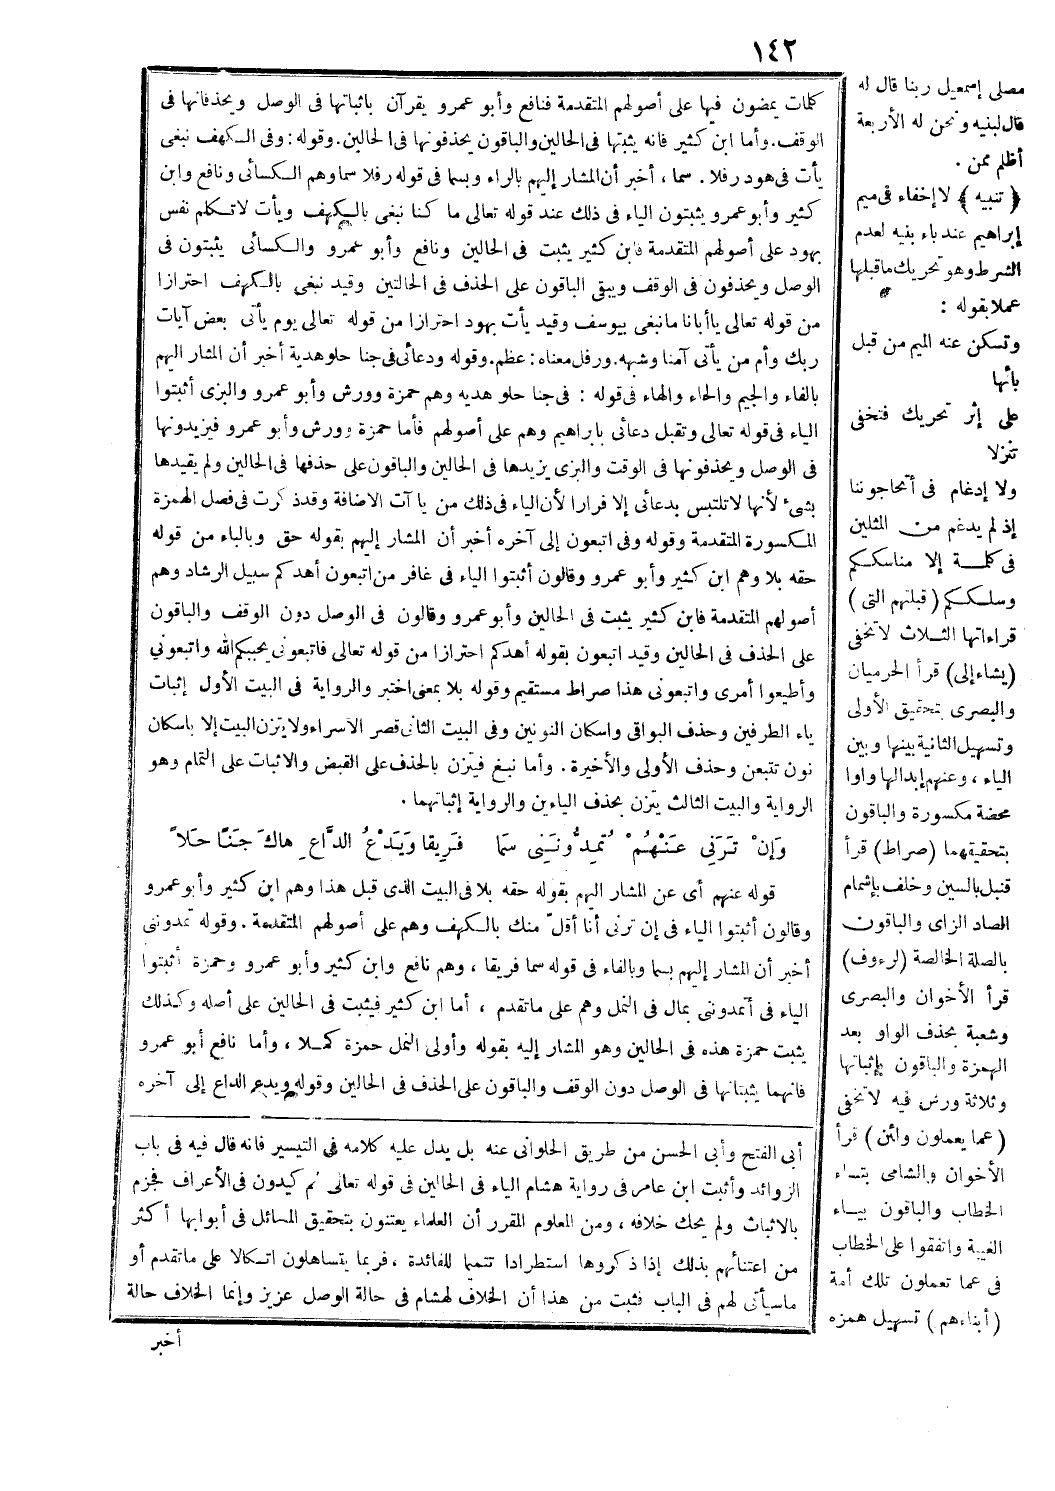 ١٤٢
كلمات يمضون فيها على أصولهم المتقدمة فنافع وأبو عمرو يقرآن باثباتها فى الوصل ويحذفانها فى
الوقف. وأما ابن كثير فانه يثبتها فى الحالين والباقون يحذفونها فى الحالين. وقوله: وفى الكهف نبغى
يأت فى هود رفلا. سما، أخبر أن المشار إليهم بالراء وبسما فى قوله رفلا سما وهم الكسائى ونافع وابن
كثير وأبو عمرو يثبتون الياء فى ذلك عند قوله تعالى ما كنا نبغى بالكهف ويأت لا تكلم نفس
بهود على أصولهم المتقدمة فابن كثير يثبت فى الحالين ونافع وأبو عمرو والكسائى يثبتون فى
الوصل ويحذفون فى الوقف ويبقى الباقون على الحذف فى الحالتين وقيد نبغى بالكهف احترازا
من قوله تعالى يا أبانا ما نبغى بيوسف وقيد يأت بهود احترازا من قوله تعالى يوم يأتى بعض آيات
ربك وأم من يأتى آمنا وشبهه. ورفل معناه: عظم. وقوله ودعائى فى جنا حلو هدية أخبر أن المشار اليهم
بالفاء والجيم والحاء والهاء فى قوله : فى جنا حلو هديه وهم حمزة وورش وأبو عمرو والبزى أثبتوا
الياء فى قوله تعالى وتقبل دعائى بابراهيم وهم على أصولهم فأما حمزة وورش وأبو عمرو فيزيدونها
فى الوصل ويحذفونها فى الوقت والبزى يزيدها فى الحالين والباقون على حذفها فى الحالين ولم يقيدها
بشئ لأنها لا تلتبس بدعائى إلا فرارا لأن الياء فى ذلك من يا آت الاضافة وقد ذكرت فى فصل الهمزة
المكسورة المتقدمة وقوله وفى اتبعون إلى آخره أخبر أن المشار إليهم بقوله حق وبالباء من قوله
حقه بلا وهم ابن كثير وأبو عمرو وقالون أثبتوا الياء فى غافر من اتبعون أهدكم سبيل الرشاد وهم
أصولهم المتقدمة فابن كثير يثبت فى الحالين وأبو عمرو وقالون فى الوصل دون الوقف والباقون
على الحذف فى الحالين وقيد اتبعون بقوله أهدكم احترازا من قوله تعالى فاتبعونى يحببكم الله واتبعوني
وأطيعوا أمرى واتبعونى هذا صراط مستقيم وقوله بلا بمعنى اختبر والرواية فى البيت الأول إثبات
ياء الطرفين وحذف البواقى واسكان النونين وفى البيت الثانى قصر الاسراء ولا يتزن البيت إلا باسكان
نون تتبعن وحذف الأولى والأخيرة. وأما نبغ فيتزن بالحذف على القبض والاثبات على التمام وهو
الرواية والبيت الثالث يتزن بحذف الياءين والرواية إثباتهما.
وَإِنْ تَرَنِي عَنْهُمْ تُمِدُّونَنِى سَمَا فَرِيقًا وَيَدْعُ الدَّاعِ هَاكَ جَنًا حَلاَ
قوله عنهم أى عن المشار اليهم بقوله حقه بلا فى البيت الذى قبل هذا وهم ابن كثير وأبو عمرو
وقالون أثبتوا الياء فى إن ترنى أنا أقلّ منك بالكهف وهم على أصولهم المتقدمة. وقوله تمدوننى
أخبر أن المشار إليهم بسما وبالفاء فى قوله سما فريقا، وهم نافع وابن كثير وأبو عمرو وحمزة أثبتوا
الياء فى أتمدوننى بمال فى النمل وهم على ما تقدم، أما ابن كثير فيثبت فى الحالين على أصله وكذلك
يثبت حمزة هذه فى الحالين وهو المشار إليه بقوله وأولى النمل حمزة كملا، وأما نافع أبو عمرو
فانهما يثبتانها فى الوصل دون الوقف والباقون على الحذف فى الحالين وقوله ويدع الداع إلى آخره
أبى الفتح وأبى الحسن من طريق الحلوانى عنه بل يدل عليه كلامه فى التيسير فانه قال فيه فى باب
الزوائد وأثبت ابن عامر فى رواية هشام الياء فى الحالين فى قوله تعالى ثم كيدون فى الأعراف فجزم
بالاثبات ولم يحك خلافه، ومن المعلوم المقرر أن العلماء يعتنون بتحقيق المسائل فى أبوابها أكثر
من اعتنائهم بذلك إذا ذكروها استطرادا تتميما للفائدة، فربما يتساهلون اتكالا على ما تقدم أو
ما سيأتى لهم فى الباب فثبت من هذا أن الخلاف لهشام فى حالة الوصل عزيز وإنما الخلاف حالة
أخبر
مصلى إسمعيل ربنا قال له
قال لبنيه ونحن له الأربعة
أظلم ممن.
﴿تنبيه﴾ لا إخفاء فى ميم
إبراهيم عند باء بنيه لعدم
الشرط وهو تحريك ما قبلها
عملا بقوله :
وتسكن عنه الميم من قبل
بائها
على إثر تحريك فتخفى
تنزلا
ولا إدغام فى أتحاجوننا
إذ لم يدغم من المثلين
فى كلمة إلا مناسككم
وسلككم (قبلتهم التى)
قراءاتها الثلاث لا تخفى
(يشاء إلى) قرأ الحرميان
والبصرى بتحقيق الأولى
وتسهيل الثانية بينها وبين
الياء، وعنهم إبدالها واوا
محضة مكسورة والباقون
بتحقيقهما (صراط) قرأ
قنبل بالسين وخلف بإشمام
الصاد الزاى والباقون
بالصلة الخالصة (لرءوف)
قرأ الأخوان والبصرى
وشعبة بحذف الواو بعد
الهمزة والباقون بإثباتها
وثلاثة ورش فيه لا تخفى
(عما يعملون ولئن) قرأ
الأخوان والشامى بتاء
الخطاب والباقون بياء
الغيبة واتفقوا على الخطاب
فى عما تعملون تلك أمة
(أبناءهم) تسهيل همزه